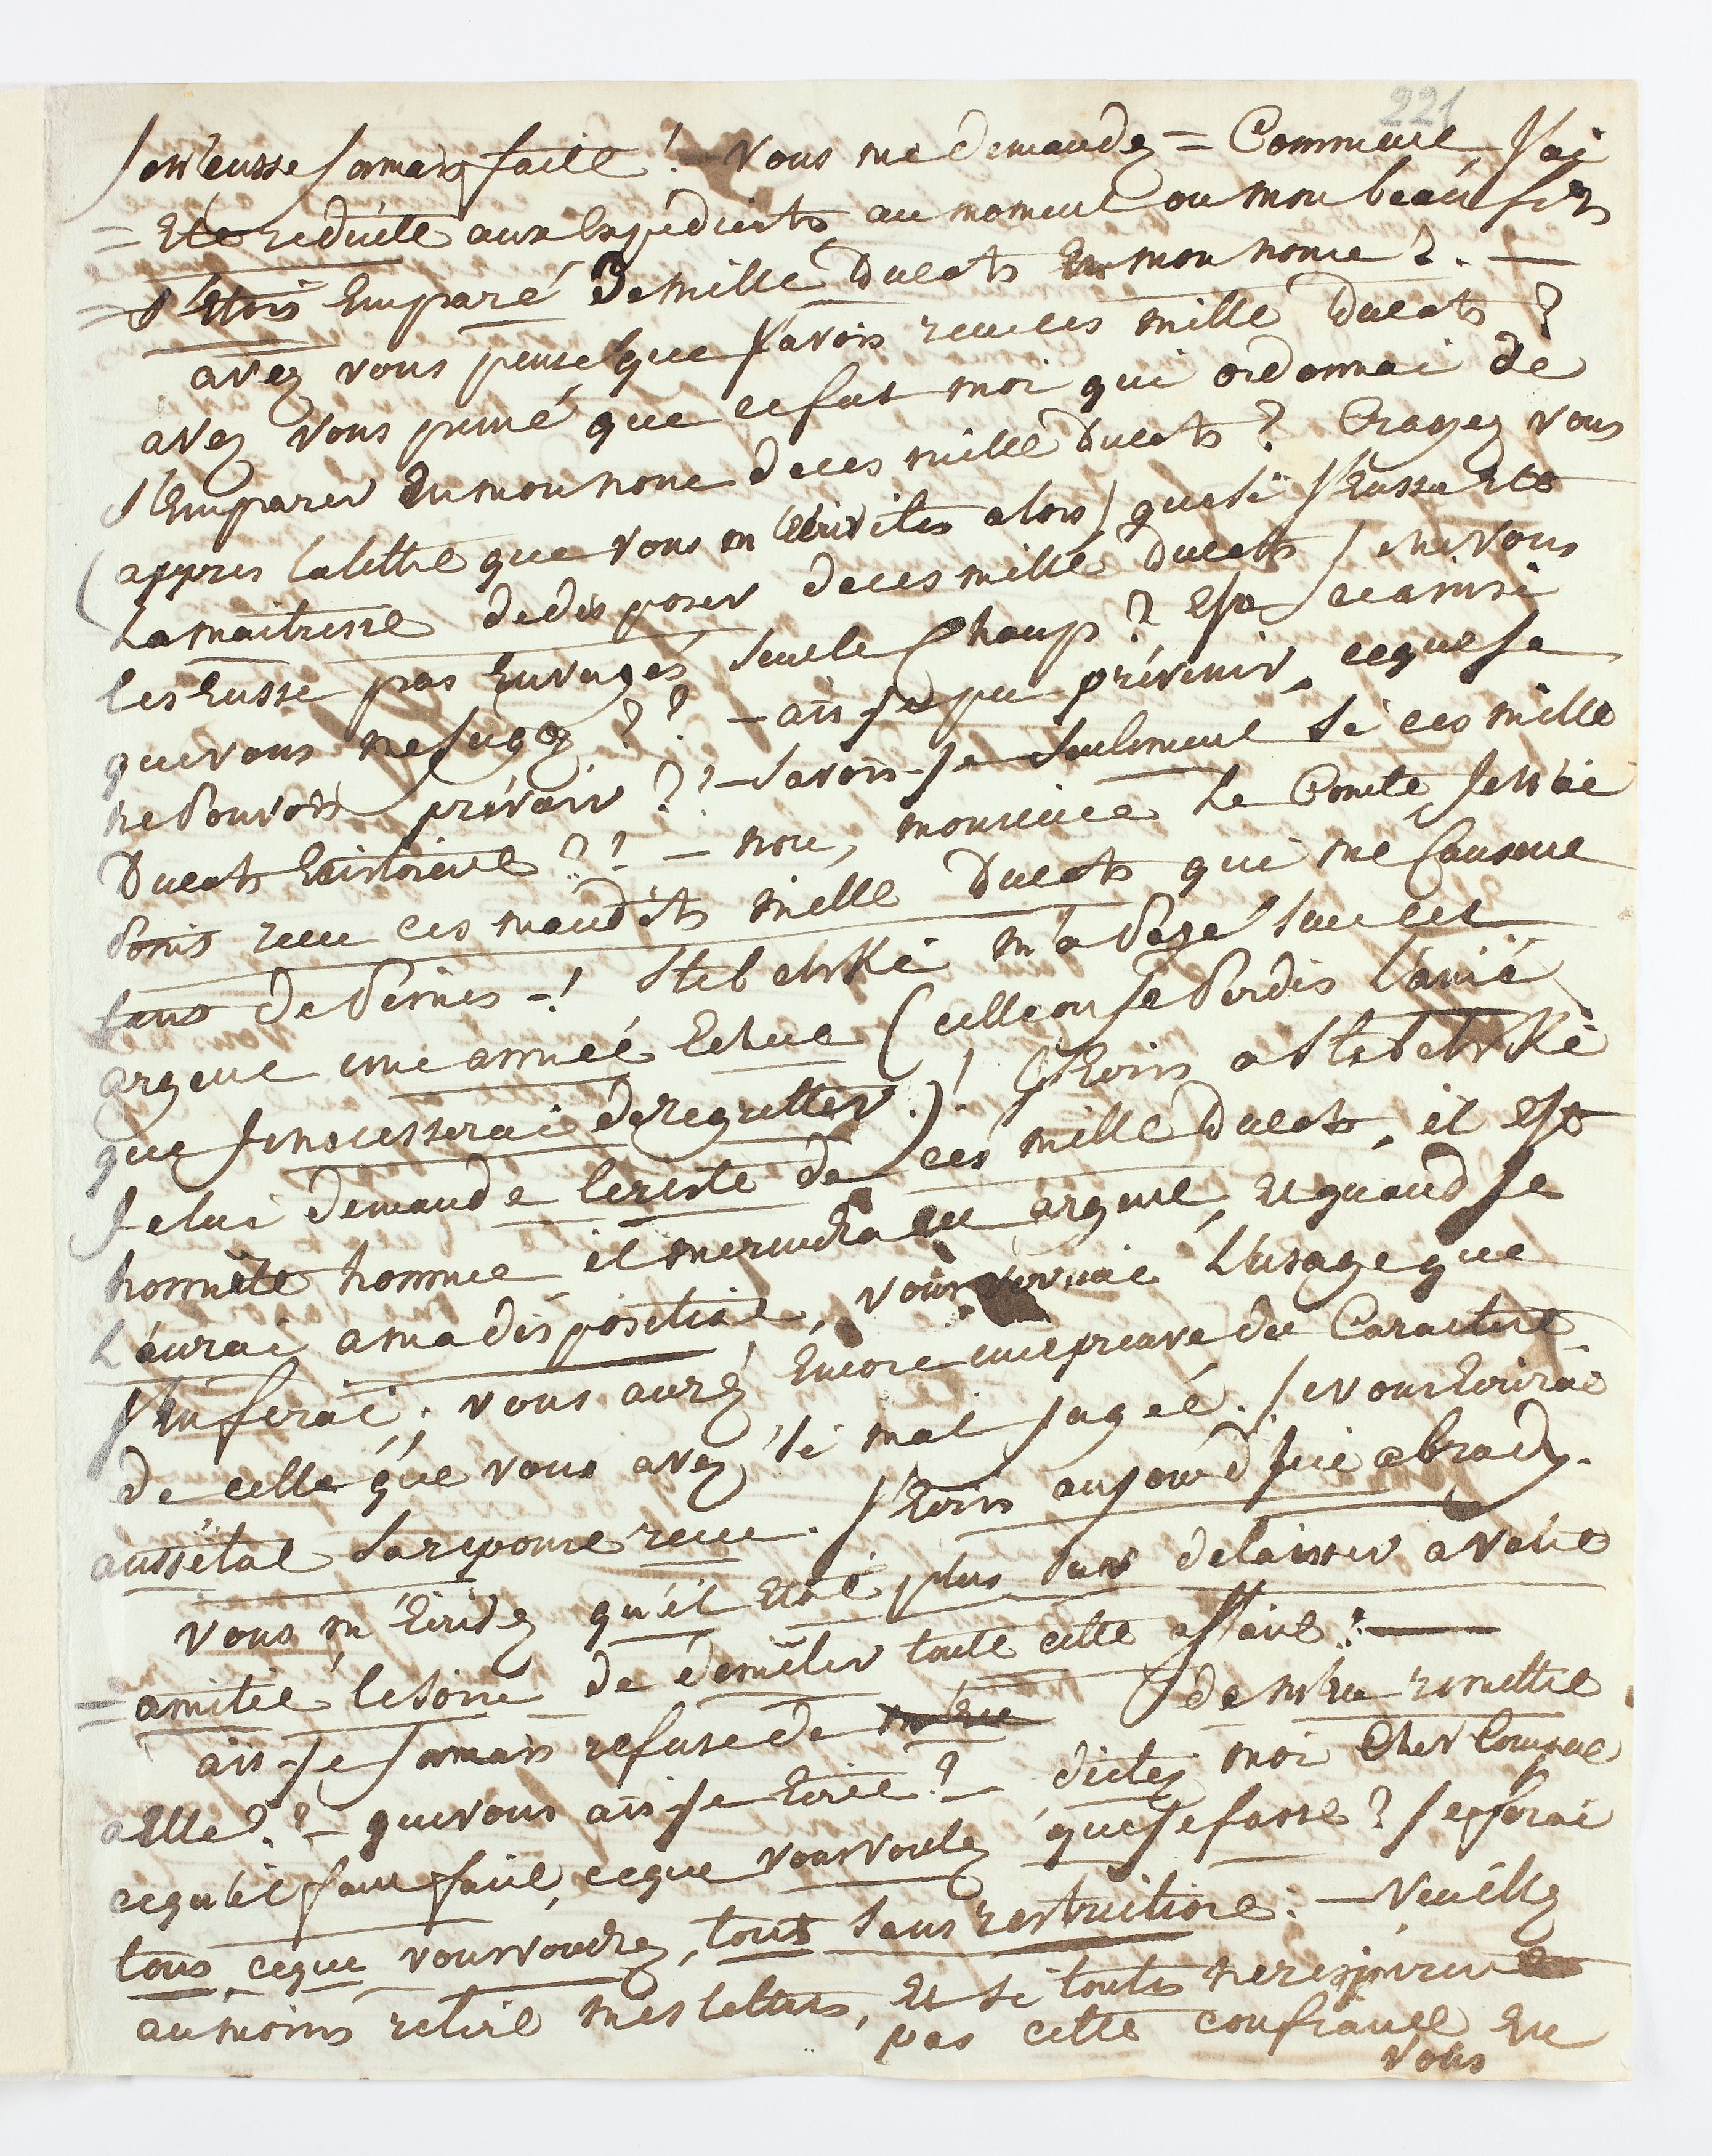 221
Je n'eusse jamais faite ! – Vous me demandez = Comment j'ai
= Eté reduite aux Expedients, au moment ou mon beau fils
= s'Etois Emparé de mille Ducats En mon nome ?. —
avez vous pensé que j'avois recu ces mille Ducats ?
avez vous pensé que ce fut moi qui ordonnai de
s'Emparer En mon nome de ces mille Ducats ? Croyez vous
(appres la lettre que vous m'Ecrivites alors) que si j'Eusse Eté
La maitresse de disposer de ces mille Ducats / je ne vous
les Eusse pas Envoyés sur le Champ ? Est ce ainsi
que vous me jugez ?? – ais je pu prévenir, ce que je
ne Pouvois prévoir ?? – Savois-je seulement si ces mille
Ducats Existoient ?! – non, monsieur Le Comte, je n'ai
Point recu ces maudits mille Ducats qui me Causent
tant de Peines –! Stebelski m'a Payé sur cet
argent une année Echue (celle ou je Perdis l'amie
que je ne cesserai de regretter.)! J'Ecris a Stebelski
Je lui demande le reste de ces mille Ducats, il est
honnete homme il me rendra cet argent, Et quand je
L'aurai a ma disposition, vous verrai L'usage que
j'En ferai; vous aurez Encore une preuve du Caractere
de celle que vous avez si mal jugée. Je vous Ecrirai
aussitot sa reponse recue. J'Ecris aujourd'hui a brody.
Vous m'Ecrivez qu'il Etoit plus sur de laisser a Votre
= amitié le soin de démêler toute cette affaire : —
ais-je jamais refusé de m'en de m'En remettre
a Elle ?? – que vous ais-je Ecrit ? – dictez moi Cher Comte
ce qu'il faut faire, ce que vous voulez que je fasse ? Je ferai
tout, ce que vous voudrez, tout sans restriction : – Veuillez
au moins relire mes lettres, Et si toutes ne respirent
pas cette confiance En
Vous